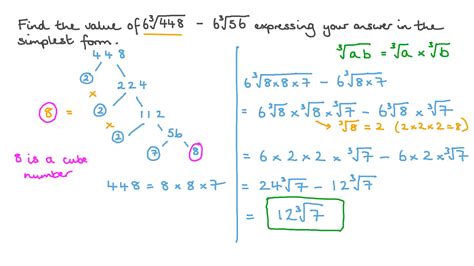 Find the value of 6∛448 - 6∛56 expressing your answer in the
simplest form.
448
2 224
×
2 112
8 = ×
2 56
7 8
8 is a cube
number
448 = 8 × 8 × 7
∛ab = ∛a × ∛b
6∛8×8×7 - 6∛8×7
= 6∛8 × ∛8 × ∛7 - 6∛8 × ∛7
→ ∛8 = 2 (2×2×2=8)
= 6 × 2 × 2 × ∛7 - 6 × 2 × ∛7
= 24∛7 - 12∛7
= 12∛7